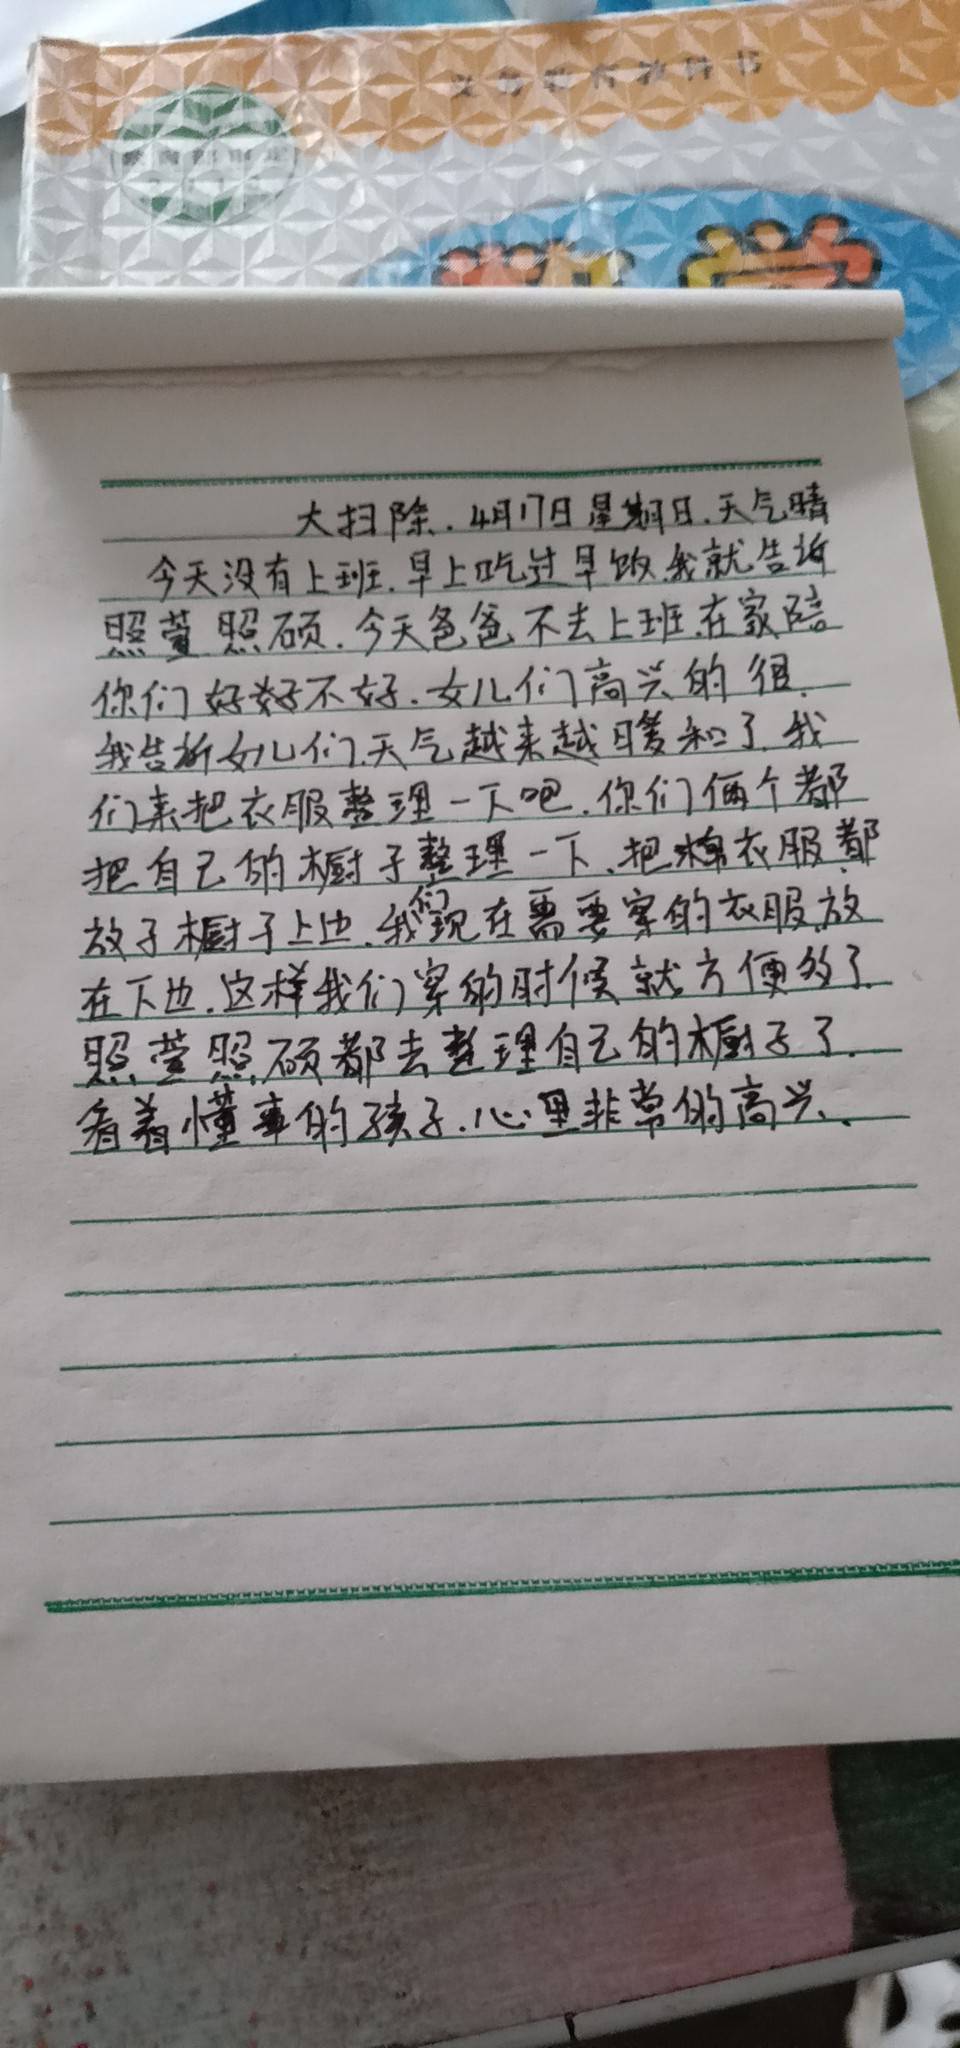 义务教育教科书
教育部审定
数学
大扫除.4月17日星期日.天气晴
今天没有上班.早上吃过早饭.我就告诉
照萱照硕.今天爸爸不去上班.在家陪
你们好好不好.女儿们高兴的很.
我告诉女儿们.天气越来越暖和了.我
们来把衣服整理一下吧.你们俩个都
把自己的橱子整理一下.把棉衣服都
放子橱子上边.我们现在需要穿的衣服.放
在下边.这样我们穿的时候就方便多了.
照萱照硕都去整理自己的橱子了.
看着懂事的孩子.心里非常的高兴.